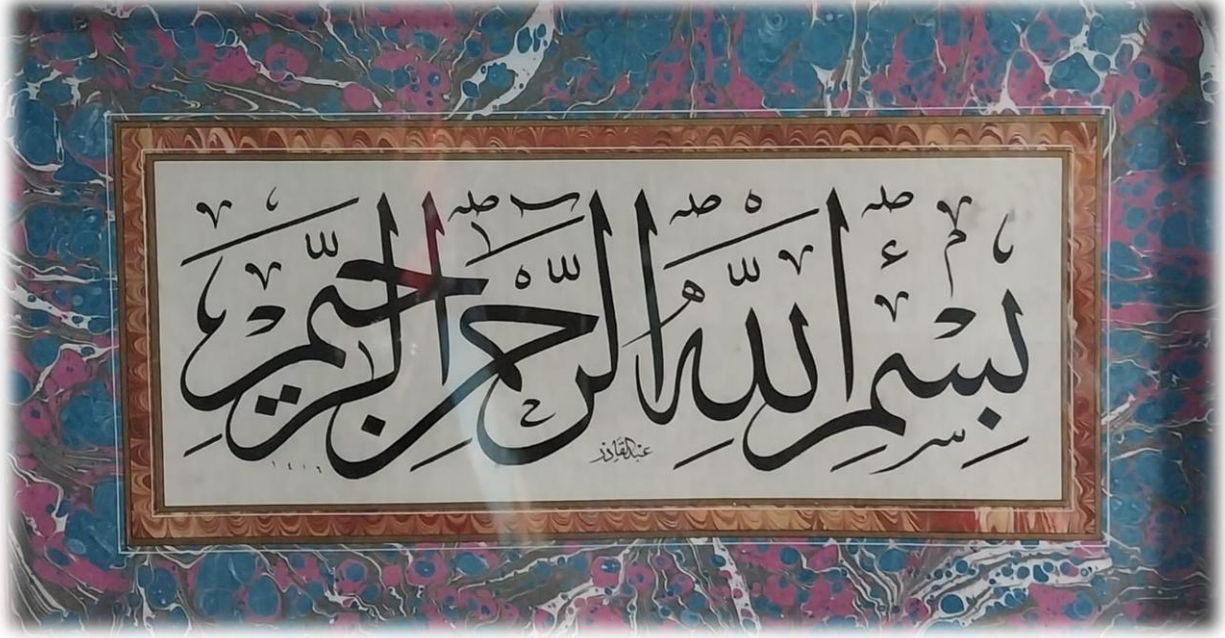 بِسْمِ اللَّهِ الرَّحْمَٰنِ الرَّحِيمِ
عبدالقادر
١٤١٦